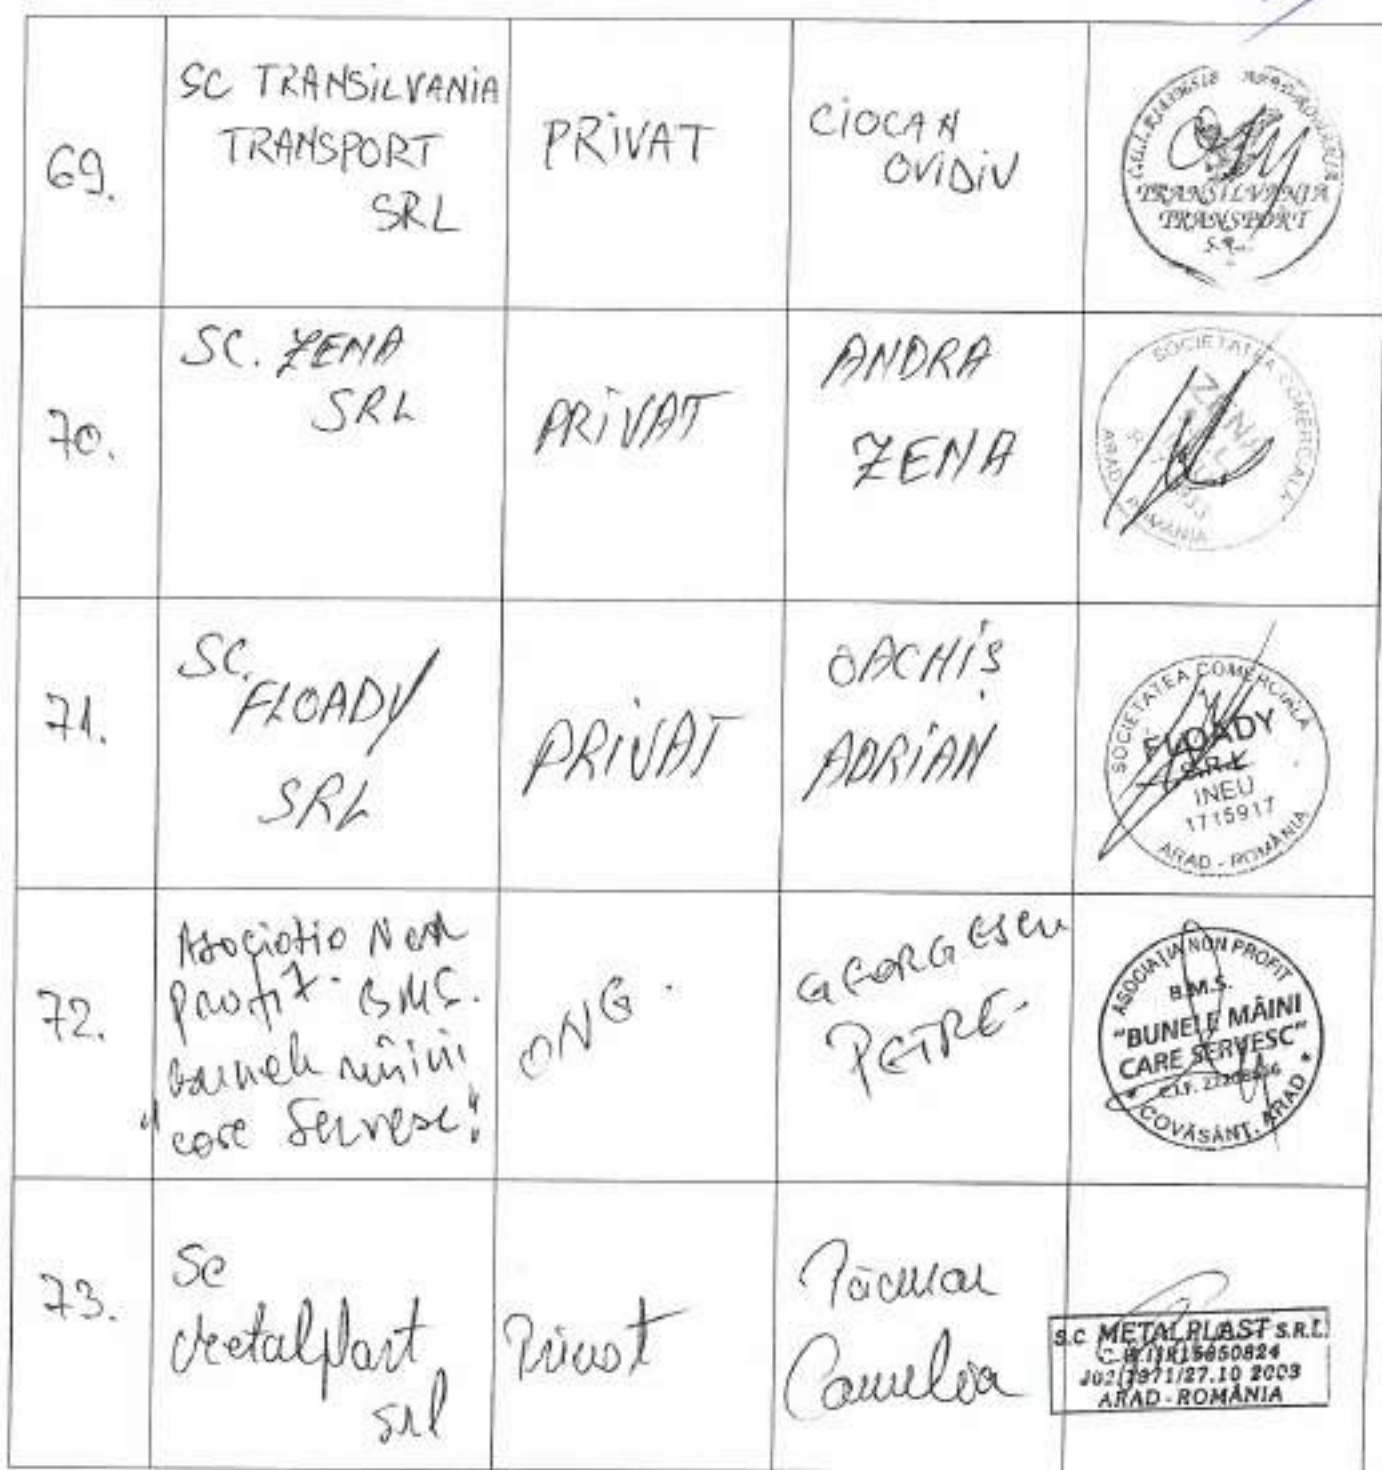 69.
SC TRANSILVANIA
TRANSPORT
SRL
PRIVAT
CIOCAN
OVIDIU
TRANSILVANIA
TRANSPORT
70.
SC. ZENA
SRL
PRIVAT
ANDRA
ZENA
SOCIETATEA COMERCIALĂ
ARAD ROMÂNIA
71.
SC.
FLOADY
SRL
PRIVAT
OACHIȘ
ADRIAN
SOCIETATEA COMERCIALĂ
FLOADY
S.R.L
INEU
1715917
ARAD - ROMÂNIA
72.
Asociatia Non
Profit BMS.
bunele mâini
"care Servesc"
ONG.
GEORGESCU
PETRE
ASOCIAȚIA NON PROFIT
B.M.S.
"BUNELE MÂINI
CARE SERVESC"
C.I.F.
* COVĂSÂNȚ, ARAD *
73.
SC
Metalplast
srl
Privat
Păcurar
Camelia
S.C METALPLAST S.R.L.
ARAD - ROMÂNIA